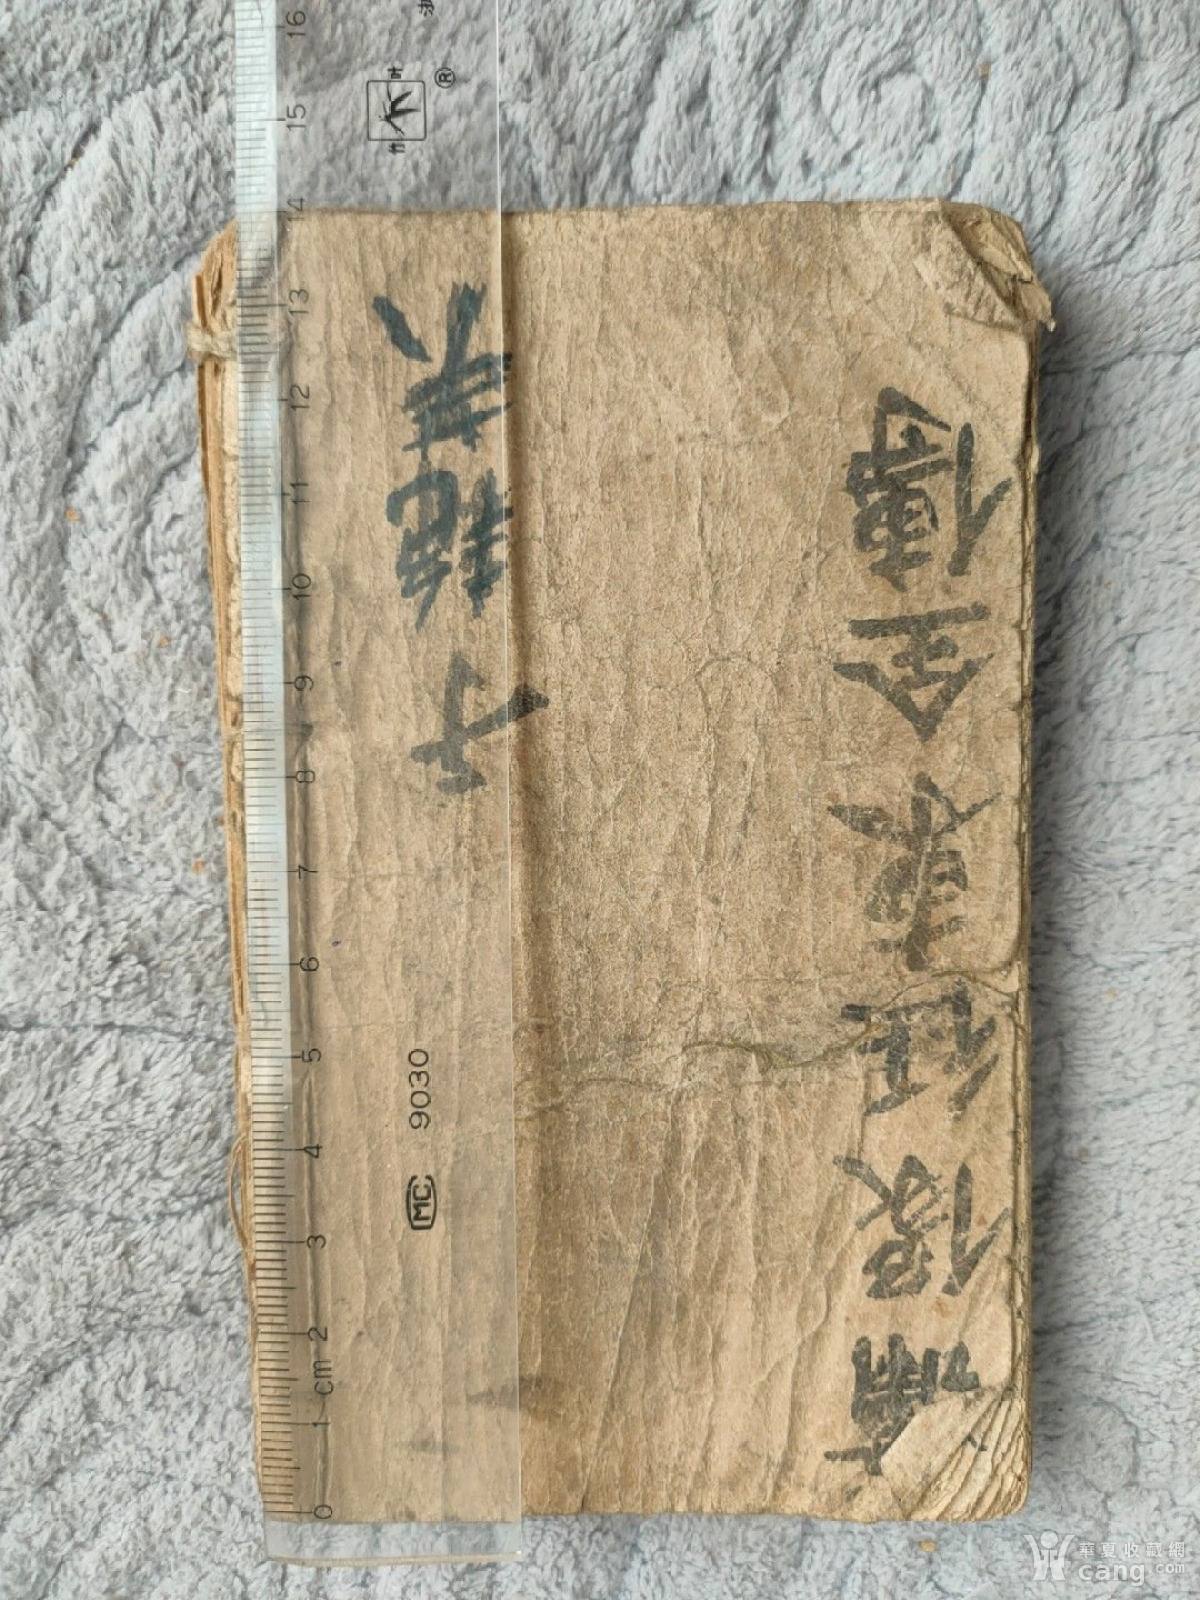 于艳英
往柬全傳
0 1 cm 2 3 4 5 6 7 8 9 10 11 12 13 14 15 16
MC 9030
竹叶 ®
華夏收藏網
cang.com